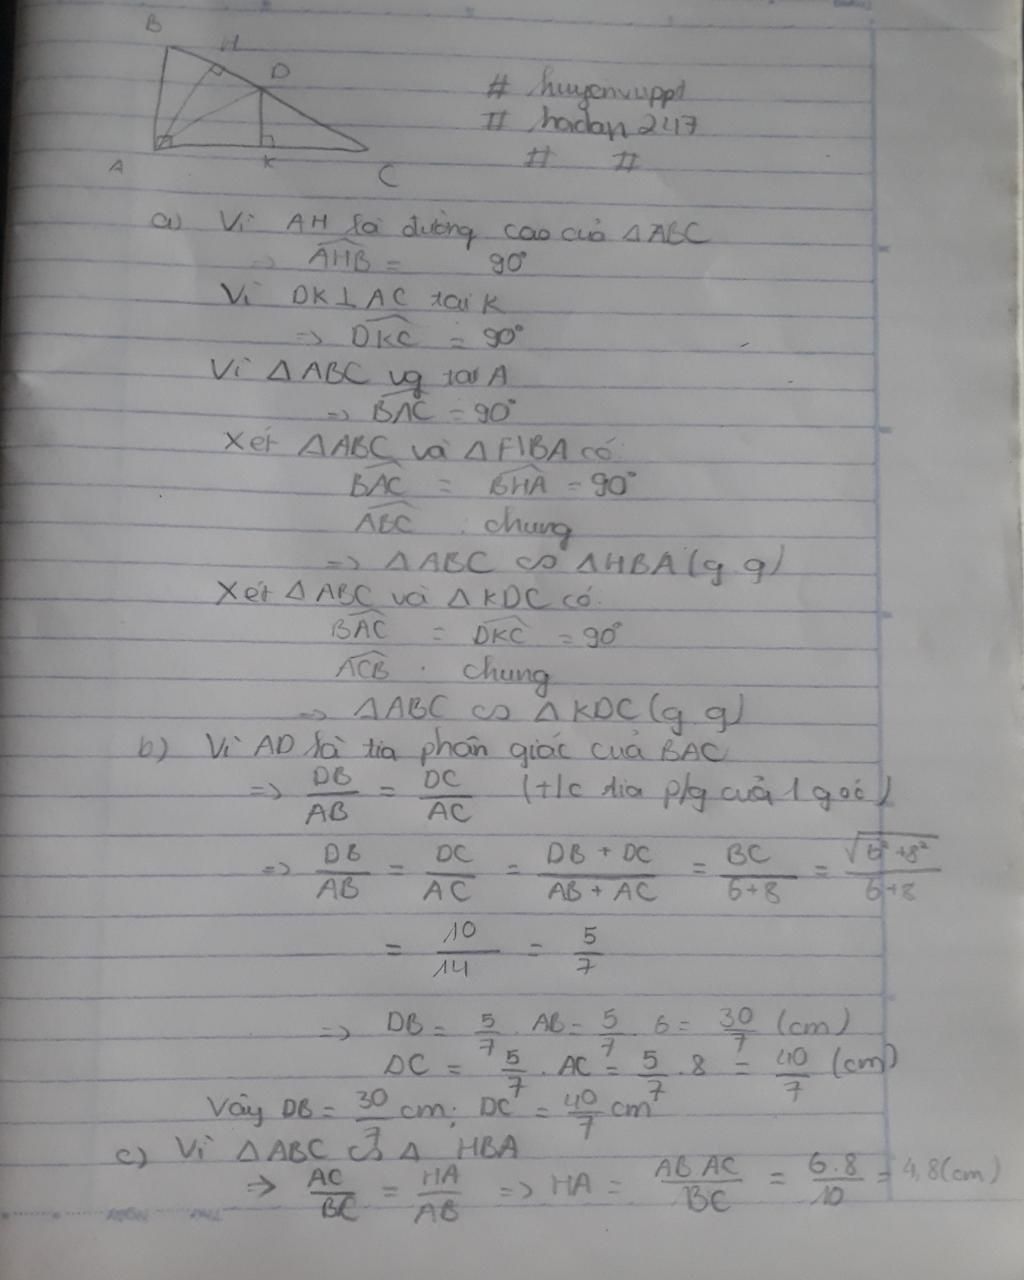 B
H
D
A
K
C
# huyenvuppt
# hoclap 247
# #
a) Vì AH là đường cao của △ABC
=> AHB = 90°
Vì DK⊥AC tại K
=> DKC = 90°
Vì △ABC vg tại A
=> BAC = 90°
Xét △ABC và △HBA có:
BAC = BHA = 90°
ABC : chung
=> △ABC ∽ △HBA (g g)
Xét △ABC và △KDC có:
BAC = DKC = 90°
ACB : chung
=> △ABC ∽ △KDC (g g)
b) Vì AD là tia phân giác của BAC
=> DB/AB = DC/AC (t/c tia p/g của 1 góc)
=> DB/AB = DC/AC = DB + DC/AB + AC = BC/6+8 = √6²+8²/6+8
= 10/14 = 5/7
=> DB = 5/7 . AB = 5/7 . 6 = 30/7 (cm)
DC = 5/7 . AC = 5/7 . 8 = 40/7 (cm)
Vậy DB = 30/7 cm; DC = 40/7 cm
c) Vì △ABC ∽ △ HBA
=> AC/BC = HA/AB => HA = AB.AC/BC = 6.8/10 = 4,8(cm)